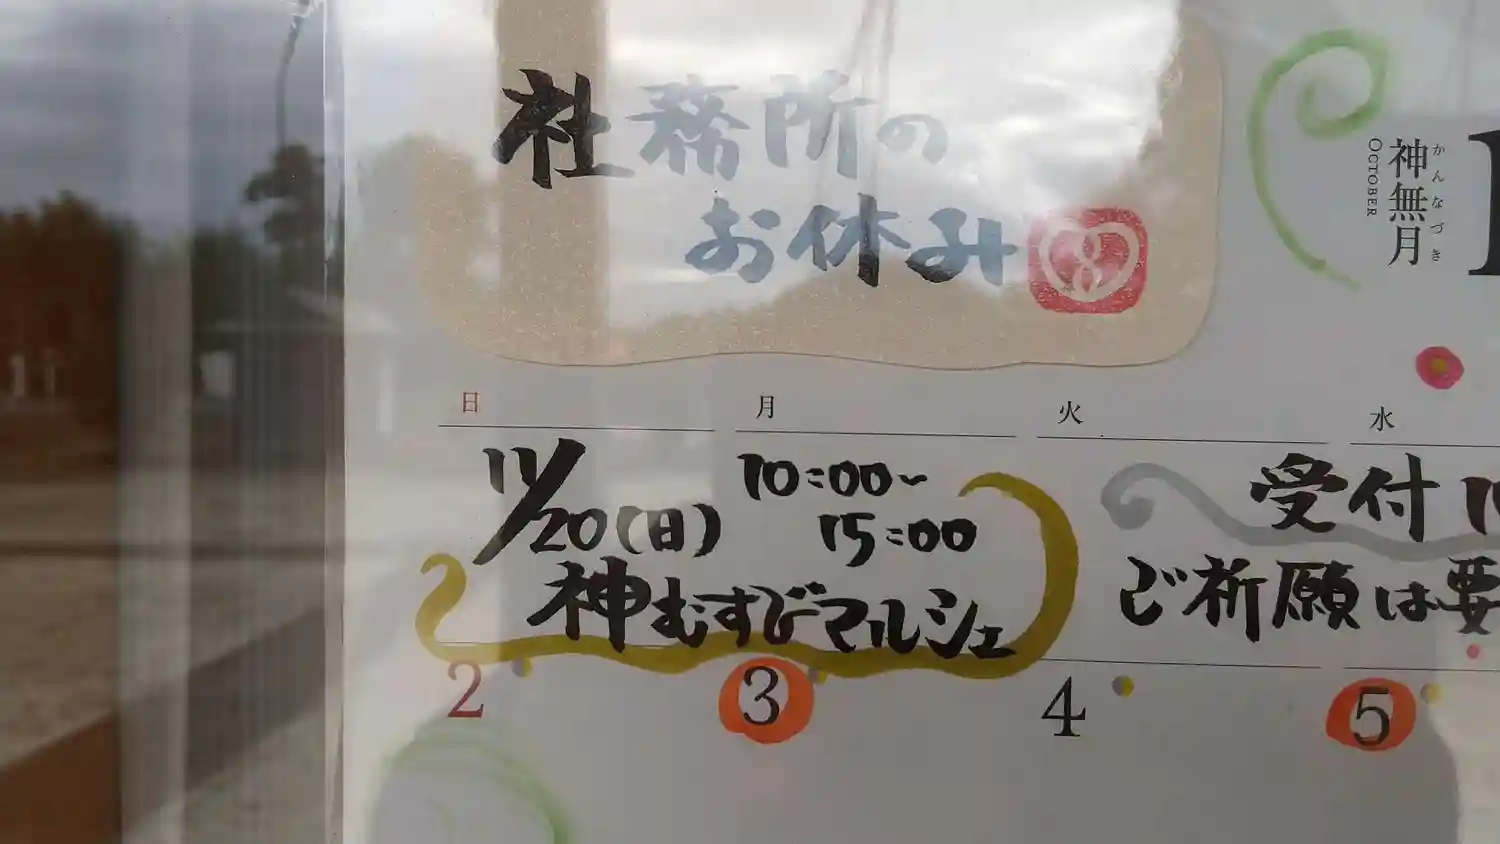 社務所の
お休み
神無月
かんなづき
OCTOBER
日 月 火 水
11/20(日) 10:00~
15:00
神むすびマルシェ
受付
ご祈願は要
2 3 4 5